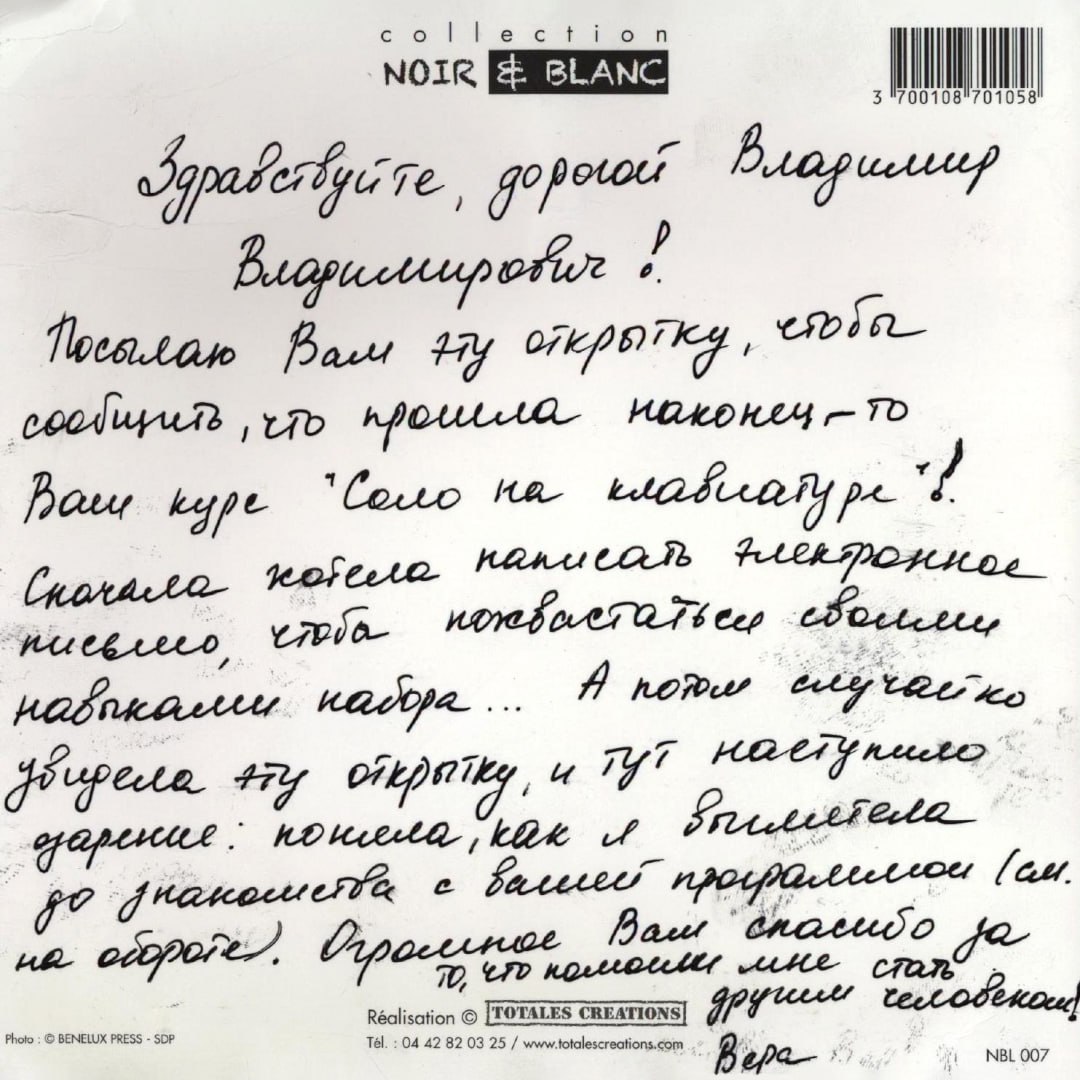 collection
NOIR & BLANC
3 700108 701058
Здравствуйте, дорогой Владимир
Владимирович!
Посылаю Вам эту открытку, чтобы
сообщить, что прошла наконец-то
Ваш курс "Соло на клавиатуре"!
Сначала хотела написать электронное
письмо, чтобы похвастаться своими
навыками набора... А потом случайно
увидела эту открытку, и тут наступило
озарение: поняла, как я выглядела
до знакомства с вашей программой (см.
на обороте). Огромное Вам спасибо за
то, что помогли мне стать
другим человеком!
Réalisation © TOTALES CREATIONS
Photo : © BENELUX PRESS - SDP
Tél. : 04 42 82 03 25 / www.totalescreations.com
Вера
NBL 007